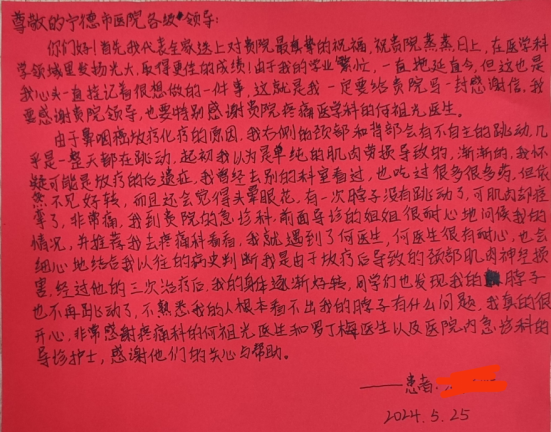 尊敬的宁德市医院各级领导:
你们好!首先我代表全家送上对贵院最真挚的祝福,祝贵院蒸蒸日上,在医学科
学领域里发扬光大,取得更佳的成绩!由于我的学业繁忙,一直拖延直今,但这也是
我心头一直挂记着很想做的一件事,这就是我一定要给贵院写一封感谢信,我
要感谢贵院领导,也要特别感谢贵院疼痛医学科的何祖光医生。
由于鼻咽癌放疗化疗的原因,我右侧的颈部和背部会有不自主的跳动,几
乎是一整天都在跳动,起初我认为是单纯的肌肉劳损导致的,渐渐的,我怀
疑可能是放疗的后遗症,我曾经去别的科室看过,也吃过很多很多药,但依
然不见好转,而且还会觉得头晕眼花,有一次脖子没有跳动了,可肌肉都痉
挛了,非常痛,我到贵院的急诊科,前面导诊的姐姐很耐心地问候我的
情况,并推荐我去疼痛科看看,我就遇到了何医生,何医生很有耐心,也会
细心地结合我以往的病史判断我是由于放疗后导致的颈部肌肉神经损
害,经过他的三次治疗后,我的身体逐渐好转,同学们也发现我的脖子
也不再跳动了,不熟悉我的人根本看不出我的脖子有什么问题,我真的很
开心,非常感谢疼痛科的何祖光医生和罗丁梅医生以及医院内急诊科的
导诊护士,感谢他们的关心与帮助。
——患者
2024.5.25